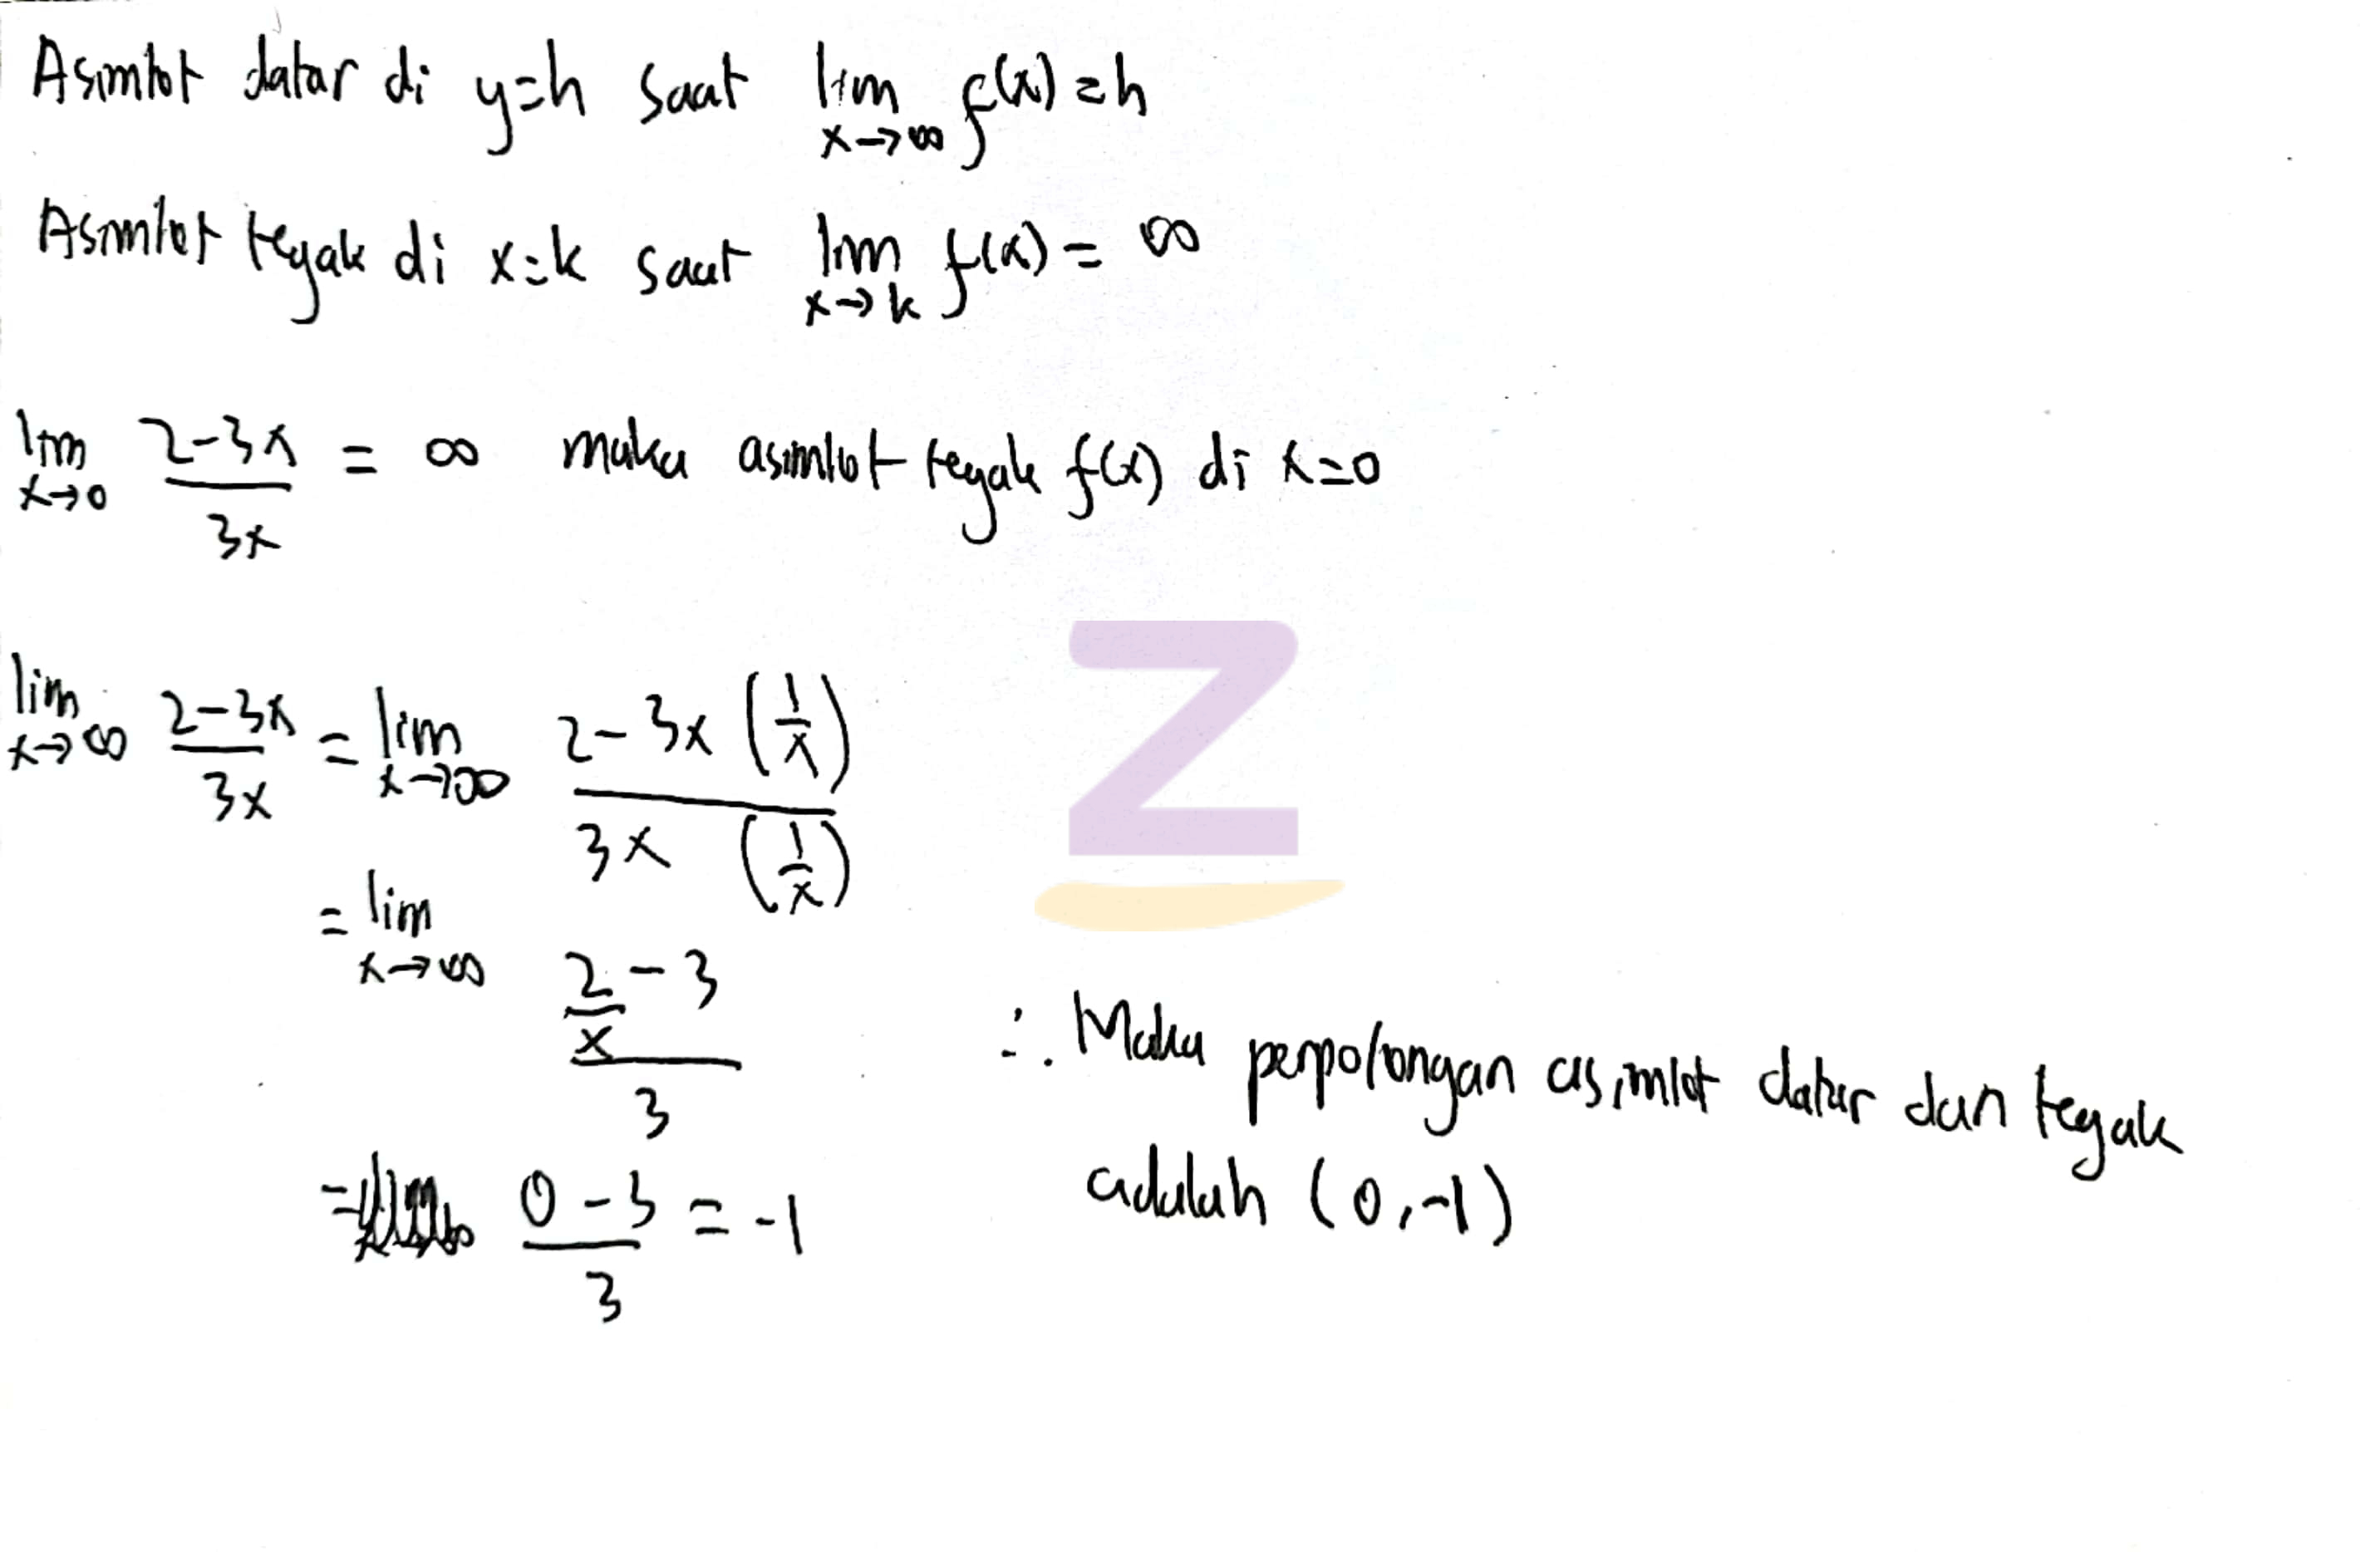 Asimtot datar di y=h saat lim x→∞ f(x)=h
Asimtot tegak di x=k saat lim x→k f(x) = ∞
lim x→0 (2-3x)/(3x) = ∞ maka asimtot tegak f(x) di x=0
lim x→∞ (2-3x)/(3x) = lim x→∞ (2-3x (1/x))/(3x (1/x))
= lim x→∞ (2/x - 3)/3
= (0-3)/3 = -1
∴ Maka perpotongan asimtot datar dan tegak
adalah (0,-1)
Z